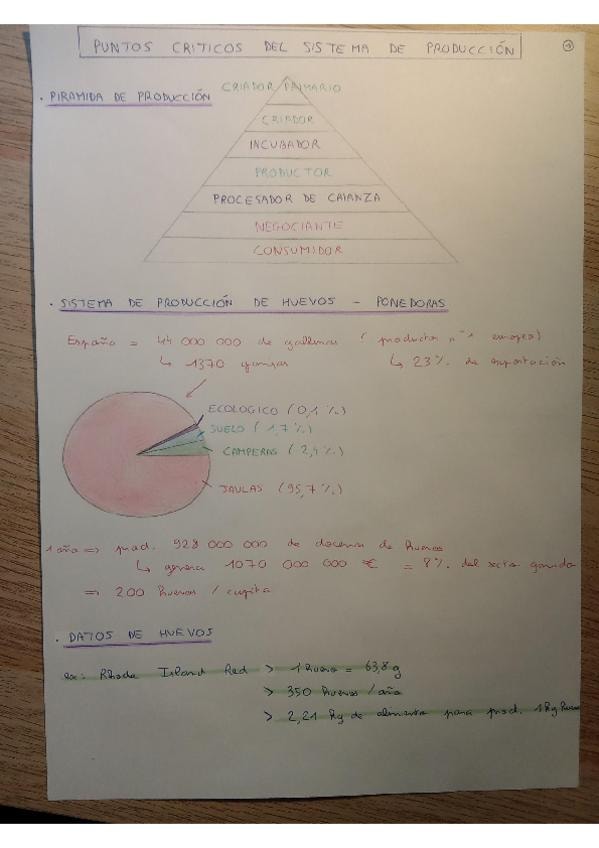 PUNTOS CRITICOS DEL SISTEMA DE PRODUCCIÓN
1
. PIRAMIDA DE PRODUCCIÓN
CRIADOR PRIMARIO
CRIADOR
INCUBADOR
PRODUCTOR
PROCESADOR DE CAIANZA
NEGOCIANTE
CONSUMIDOR
. SISTEMA DE PRODUCCIÓN DE HUEVOS - PONEDORAS
España = 44 000 000 de gallinas ( productor n°1 europeo)
↳ 1370 granjas ↳ 23 % de exportación
ECOLOGICO (0,1 %)
SUELO (1,7 %)
CAMPERAS (2,4 %)
JAULAS (95,7 %)
1 año => prod. 928 000 000 de docenas de huevos
↳ genera 1070 000 000 € = 8 % del sector ganado
=> 200 huevos / capita
. DATOS DE HUEVOS
ex: Rhode Island Red > 1 huevo = 63,8 g
> 350 huevos / año
> 2,21 kg de alimento para prod. 1 kg huevo